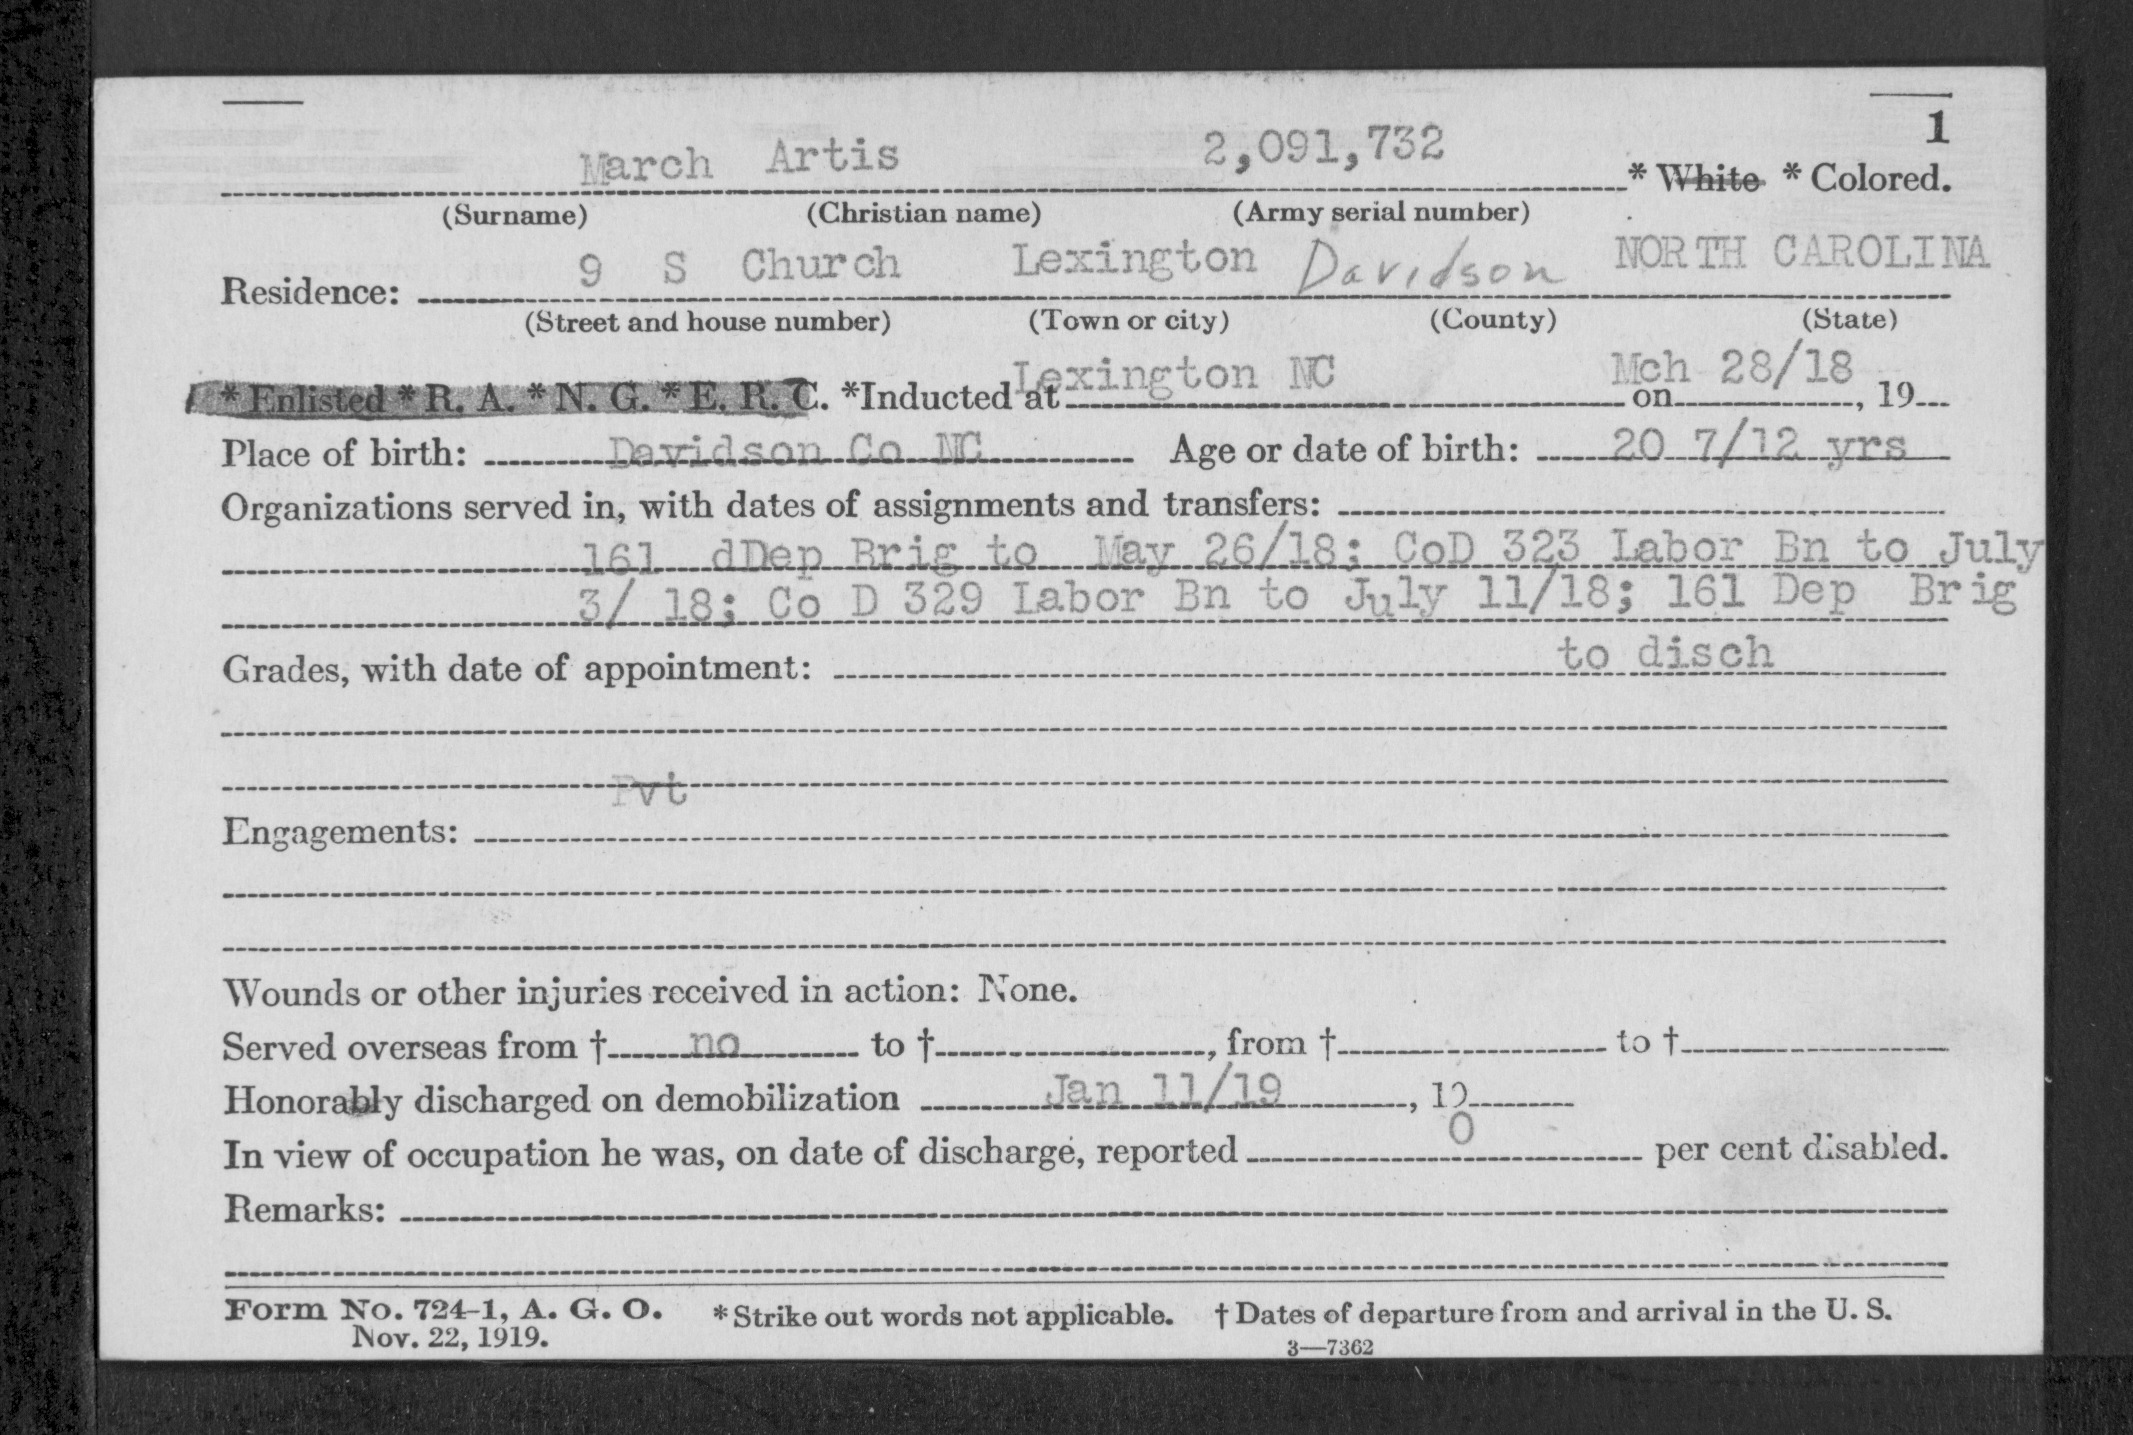 1
March Artis 2,091,732 * White * Colored.
(Surname) (Christian name) (Army serial number)
Residence: 9 S Church Lexington Davidson NORTH CAROLINA
(Street and house number) (Town or city) (County) (State)
* Enlisted * R. A. * N. G. * E. R. C. *Inducted at Lexington NC on Mch 28/18, 19
Place of birth: Davidson Co NC Age or date of birth: 20 7/12 yrs
Organizations served in, with dates of assignments and transfers:
161 dDep Brig to May 26/18; CoD 323 Labor Bn to July
3/ 18; Co D 329 Labor Bn to July 11/18; 161 Dep Brig
Grades, with date of appointment: to disch
Pvt
Engagements:
Wounds or other injuries received in action: None.
Served overseas from † no to †, from † to †
Honorably discharged on demobilization Jan 11/19, 19
In view of occupation he was, on date of discharge, reported 0 per cent disabled.
Remarks:
Form No. 724-1, A. G. O. * Strike out words not applicable. † Dates of departure from and arrival in the U. S.
Nov. 22, 1919. 3—7362